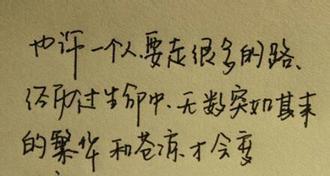 也许一个人,要走很多的路、
经历过生命中、无数突如其来
的繁华和苍凉、才会变